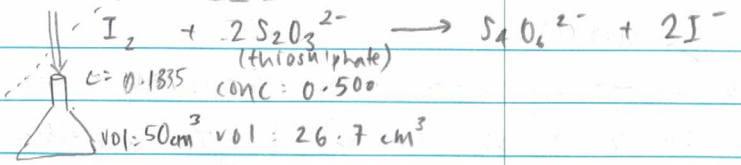 I₂ + 2 S₂O₃²⁻ → S₄O₆²⁻ + 2I⁻
(thiosulphate)
c = 0.1335 conc : 0.500
vol = 50cm³ vol : 26.7 cm³